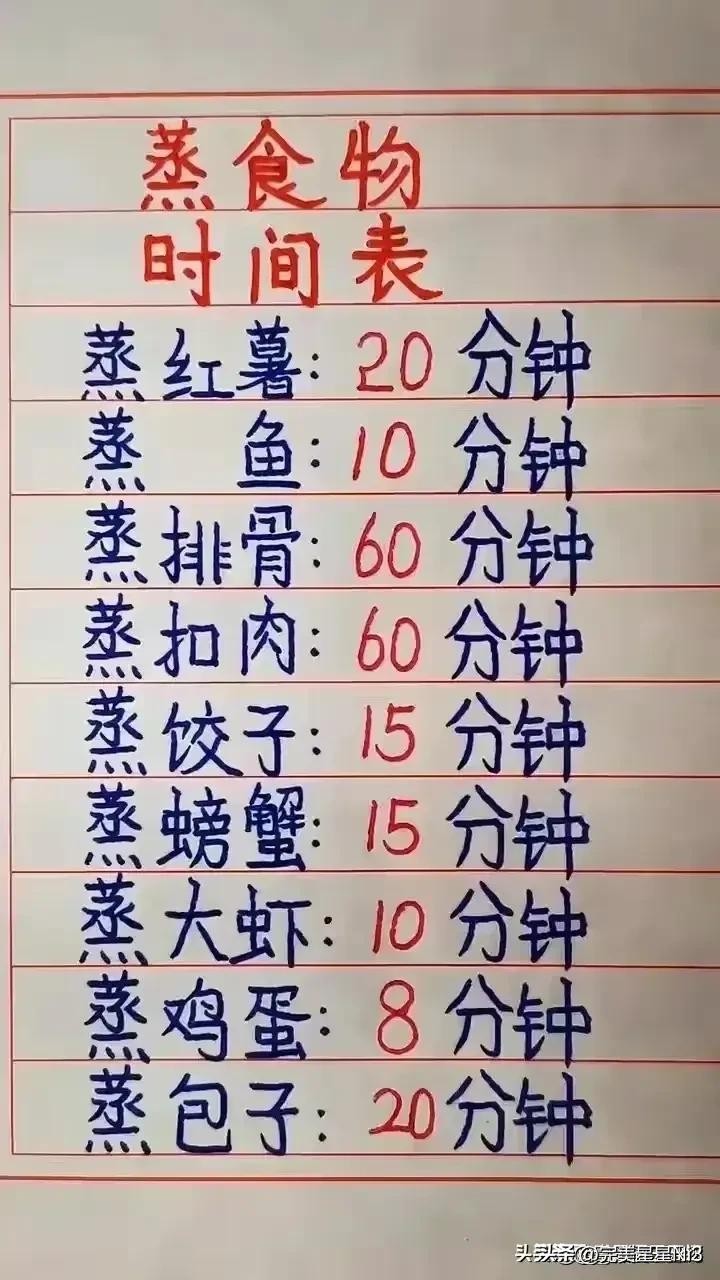 蒸食物
时间表
蒸红薯：20分钟
蒸 鱼：10分钟
蒸排骨：60分钟
蒸扣肉：60分钟
蒸饺子：15分钟
蒸螃蟹：15分钟
蒸大虾：10分钟
蒸鸡蛋：8分钟
蒸包子：20分钟
头条 @完美星星